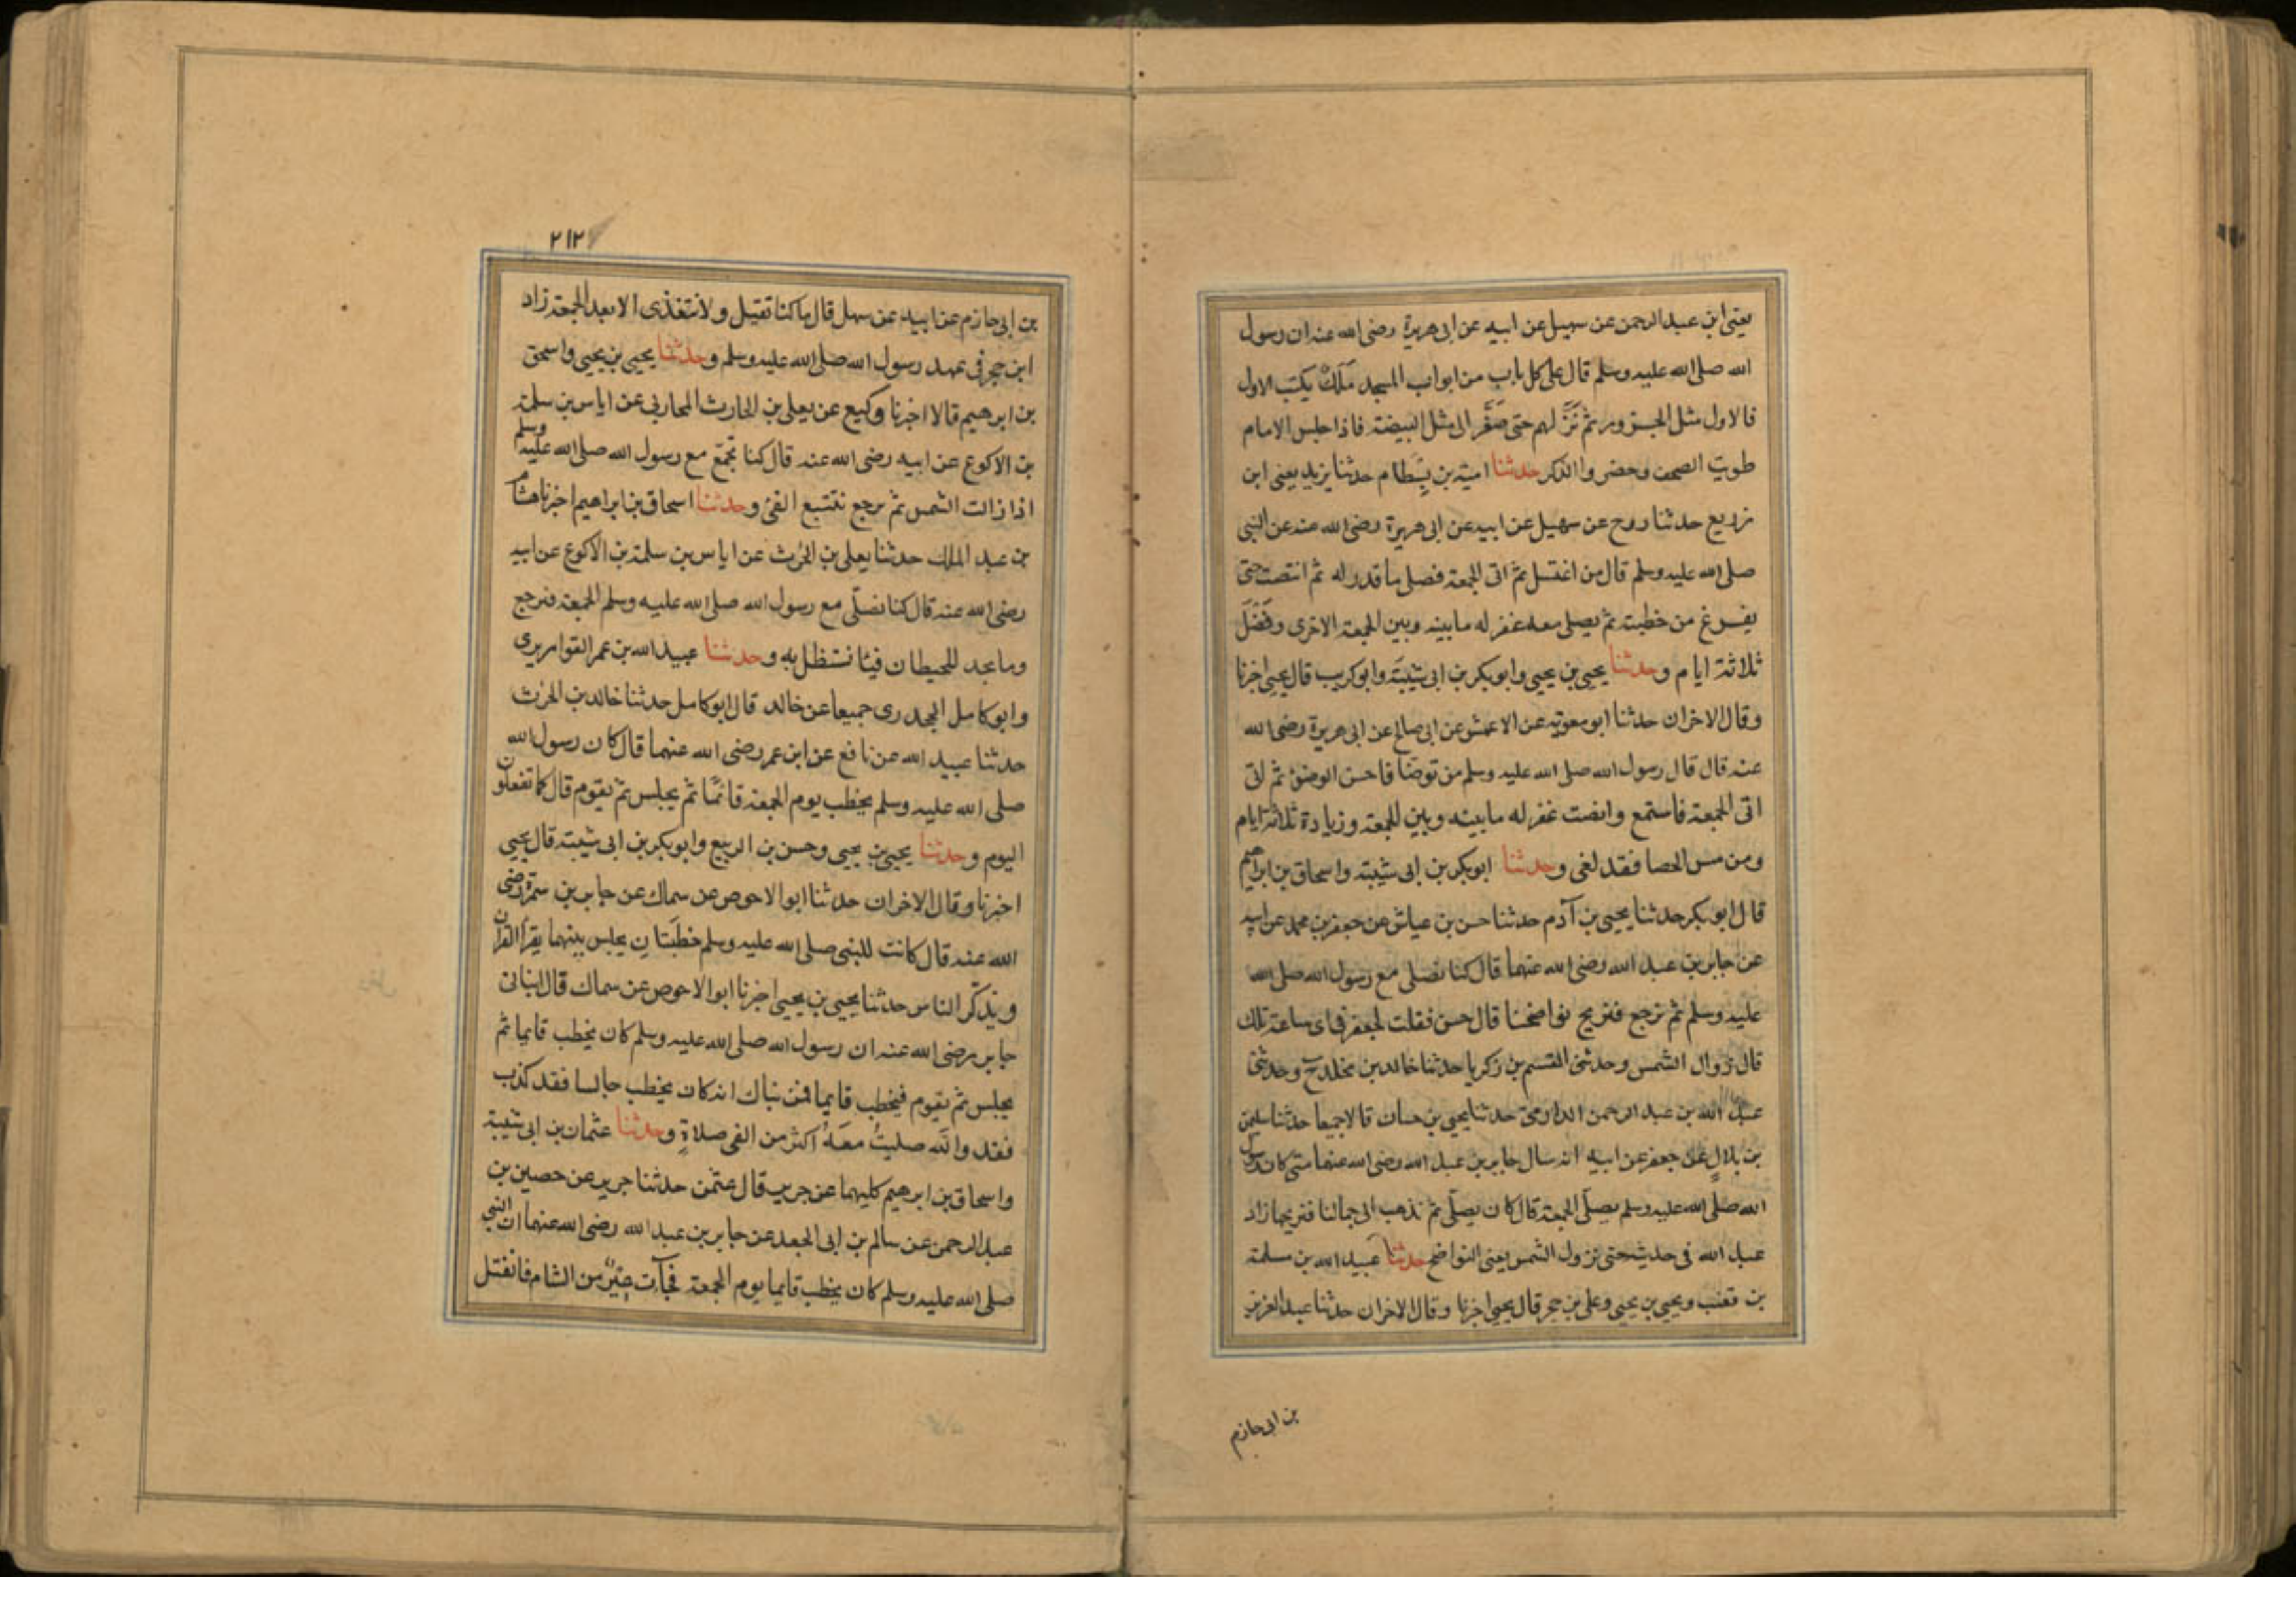 يعنى ابن عبد الرحمن عن سهيل عن ابيه عن ابى هريرة رضى الله عنه ان رسول
الله صلى الله عليه وسلم قال على كل باب من ابواب المسجد مَلَكٌ يكتب الاول
فالاول مثل الجزور ثم نَزَّلهم حتى صَغَّر الى مثل البيضة فاذا جلس الامام
طويت الصحف وحضروا الذكر حدثنا امية بن بِسَطام حدثنا يزيد يعنى ابن
زريع حدثنا روح عن سهيل عن ابيه عن ابى هريرة رضى الله عنه عن النبى
صلى الله عليه وسلم قال من اغتسل ثم اتى الجمعة فصلى ما قدر له ثم انتصت حتى
يفرغ من خطبته ثم يصلى معه غفر له ما بينه وبين الجمعة الاخرى وفَضْلَ
ثلاثة ايام وحدثنا يحيى بن يحيى وابوبكر بن ابى شيبَة وابوكريب قال يحيى اخبرنا
وقال الاخران حدثنا ابو معوية عن الاعمش عن ابى صالح عن ابى هريرة رضى الله
عنه قال قال رسول الله صلى الله عليه وسلم من توضا فاحسن الوضوٴ ثم
اتى الجمعة فاستمع وانصت غفر له ما بينه وبين الجمعة وزيادة ثلاثة ايام
ومن مس الحصا فقد لغى وحدثنا ابوبكر بن ابى شيبة واسحاق بن ابراهيم
قال ابو بكر حدثنا يحيى بن آدم حدثنا حسن بن عياش عن جعفر بن محمد عن ابيه
عن جابر بن عبد الله رضى الله عنهما قال كنا نصلى مع رسول الله صلى الله
عليه وسلم ثم نرجع فنريح نواضحنا قال حسن فقلت لجعفر فى اى ساعة تلك
قال زوال الشمس وحدثنى القسم بن زكريا حدثنا خالد بن مخلد ح وحدثنى
عبد الله بن عبد الرحمن الدارمى حدثنا يحيى بن حسان قالا جميعا حدثنا سليمن
بن بلالٍ عن جعفر عن ابيه انه سال جابر بن عبد الله رضى الله عنهما متى كان رسول
الله صلى الله عليه وسلم يصلّى الجمعة قال كان يصلّى ثم نذهب الى جمالنا فنريحها زاد
عبد الله فى حديثه حتى تزول الشمس يعنى النواضح حدثنا عبد الله بن مسلمة
بن قعنب ويحيى بن يحيى وعلى بن حجر قال يحيى اخبرنا وقال الاخران حدثنا عبد العزيز
بن ابى حازم
٢١٢
بن ابى حازم عن ابيه عن سهل قال ما كنا نقيل ولا نتغذى الا بعد الجمعة زاد
ابن حجر فى عهد رسول الله صلى الله عليه وسلم وحدثنا يحيى بن يحيى واسحق
بن ابرهيم قالا اخبرنا وكيع عن يعلى بن الحارث المحاربى عن اياس بن سلمة
بن الاكوع عن ابيه رضى الله عنه قال كنا نجمّع مع رسول الله صلى الله عليه وسلم
اذا زالت الشمس ثم نرجع نتتبع الفئ وحدثنا اسحاق بن ابراهيم اخبرنا هشام
بن عبد الملك حدثنا يعلى بن الحٰرث عن اياس بن سلمة بن الاكوع عن ابيه
رضى الله عنه قال كنا نصلّى مع رسول الله صلى الله عليه وسلم الجمعة فنرجع
وما نجد للحيطان فيئا نستظل به وحدثنا عبيد الله بن عمر القواريرى
وابو كامل الجحدرى جميعا عن خالد قال ابو كامل حدثنا خالد بن الحٰرث
حدثنا عبيد الله عن نافع عن ابن عمر رضى الله عنهما قال كان رسول الله
صلى الله عليه وسلم يخطب يوم الجمعة قائمًا ثم يجلس ثم يقوم قال كما تفعلون
اليوم وحدثنا يحيى بن يحيى وحسن بن الربيع وابوبكر بن ابى شيبة قال يحيى
اخبرنا وقال الاخران حدثنا ابو الاحوص عن سماك عن جابر بن سمرة رضى
الله عنه قال كانت للنبى صلى الله عليه وسلم خطبَتانِ يجلس بينهما يقرأ القرآن
ويذكّر الناس حدثنا يحيى بن يحيى اخبرنا ابو الاحوص عن سماك قال انبانى
جابر رضى الله عنه ان رسول الله صلى الله عليه وسلم كان يخطب قايما ثم
يجلس ثم يقوم فيخطب قايما فمن نباك انه كان يخطب جالسا فقد كذب
فقد والله صليتُ معَهُ اكثر من الفى صلاةٍ وحدثنا عثمان بن ابى شيبة
واسحاق بن ابرهيم كليهما عن جرير قال عثمن حدثنا جرير عن حصين بن
عبد الرحمن عن سالم بن ابى الجعد عن جابر بن عبد الله رضى الله عنهما ان النبى
صلى الله عليه وسلم كان يخطب قايما يوم الجمعة فجآت عِيْرٌ من الشام فانفتل